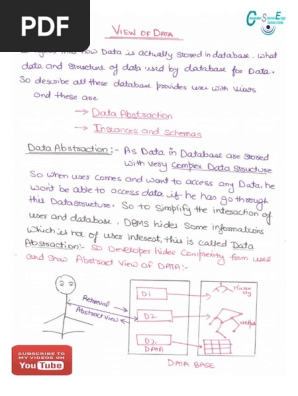 PDF
VIEW OF DATA
Data is actually stored in database, what
data and structure of data used by database for Data.
So describe all these database provides user with views
and these are
→ Data Abstraction
→ Instances and Schemas
Data Abstraction:- As Data in Database are stored
with very Complex Data Structure
So when user comes and want to access any Data, he
won't be able to access data if he has go through
this DataStructure. So to simplify the interaction of
user and database, DBMS hides some information
which is not of user interest, this is called Data
Abstraction:- So Developer hides Complexity from user
and show Abstract View of DATA:-
D1
Retrieval
Abstract view
D2
D3
DATA
DATA BASE
SUBSCRIBE TO
MY VIDEOS ON
YouTube